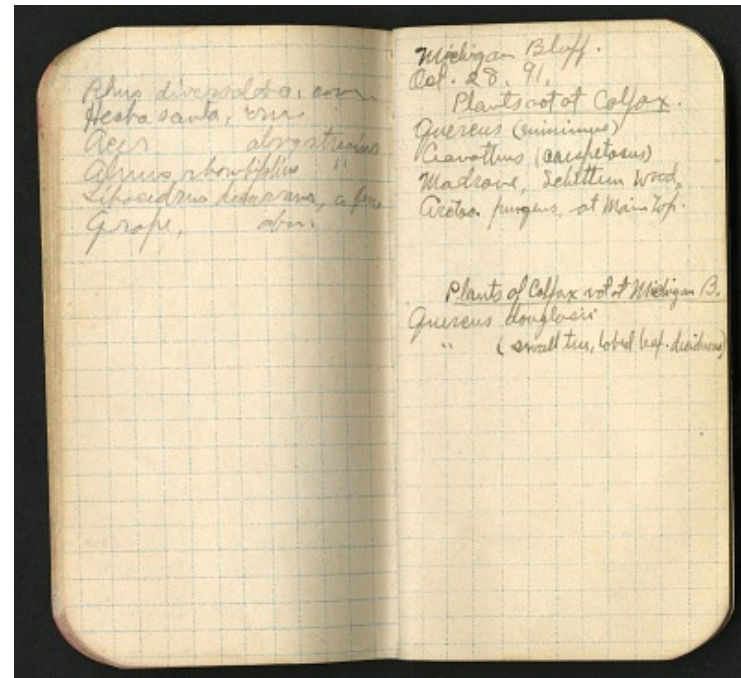 Rhus diversoloba, com
Herba santa, "
Acer
Alnus rhombifolia "
Libocedrus decurrens, a few
Grape, abun
Michigan Bluff.
Oct. 28. 91.
Plants not at Colfax.
Quercus
Ceanothus
Madrone, Wood,
Arctos. pungens, at Main Top.
Plants of Colfax not at Michigan B.
Quercus douglasii
" (small tree, lobed leaf. deciduous)